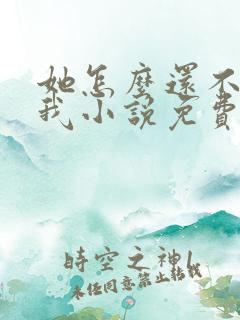 她怎麼還不
我小說免費
時空之神l
未经同意禁止转载